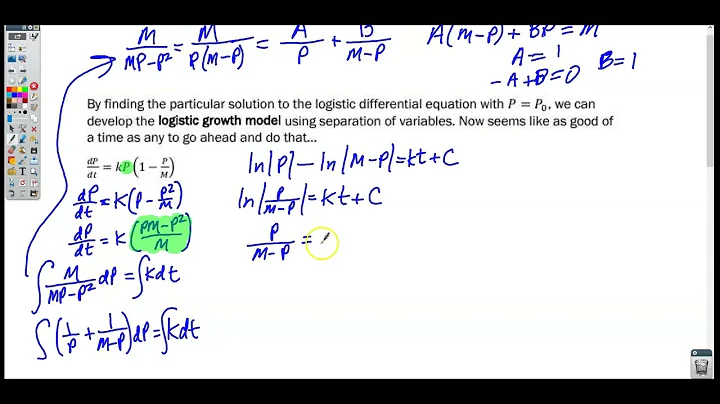 M/(MP-P²) = M/(P(M-P)) = A/P + B/(M-P)
A(M-P) + BP = M
A = 1
-A+B=0 B=1
By finding the particular solution to the logistic differential equation with P = P₀, we can
develop the logistic growth model using separation of variables. Now seems like as good of
a time as any to go ahead and do that...
dP/dt = kP(1 − P/M)
dP/dt = K(P - P²/M)
dP/dt = K(PM-P²/M)
∫ M/(MP-P²) dP = ∫ Kdt
∫ (1/P + 1/(M-P)) dP = ∫ Kdt
ln|P| - ln|M-P| = kt + C
ln|P/(M-P)| = Kt + C
P/(M-P) =